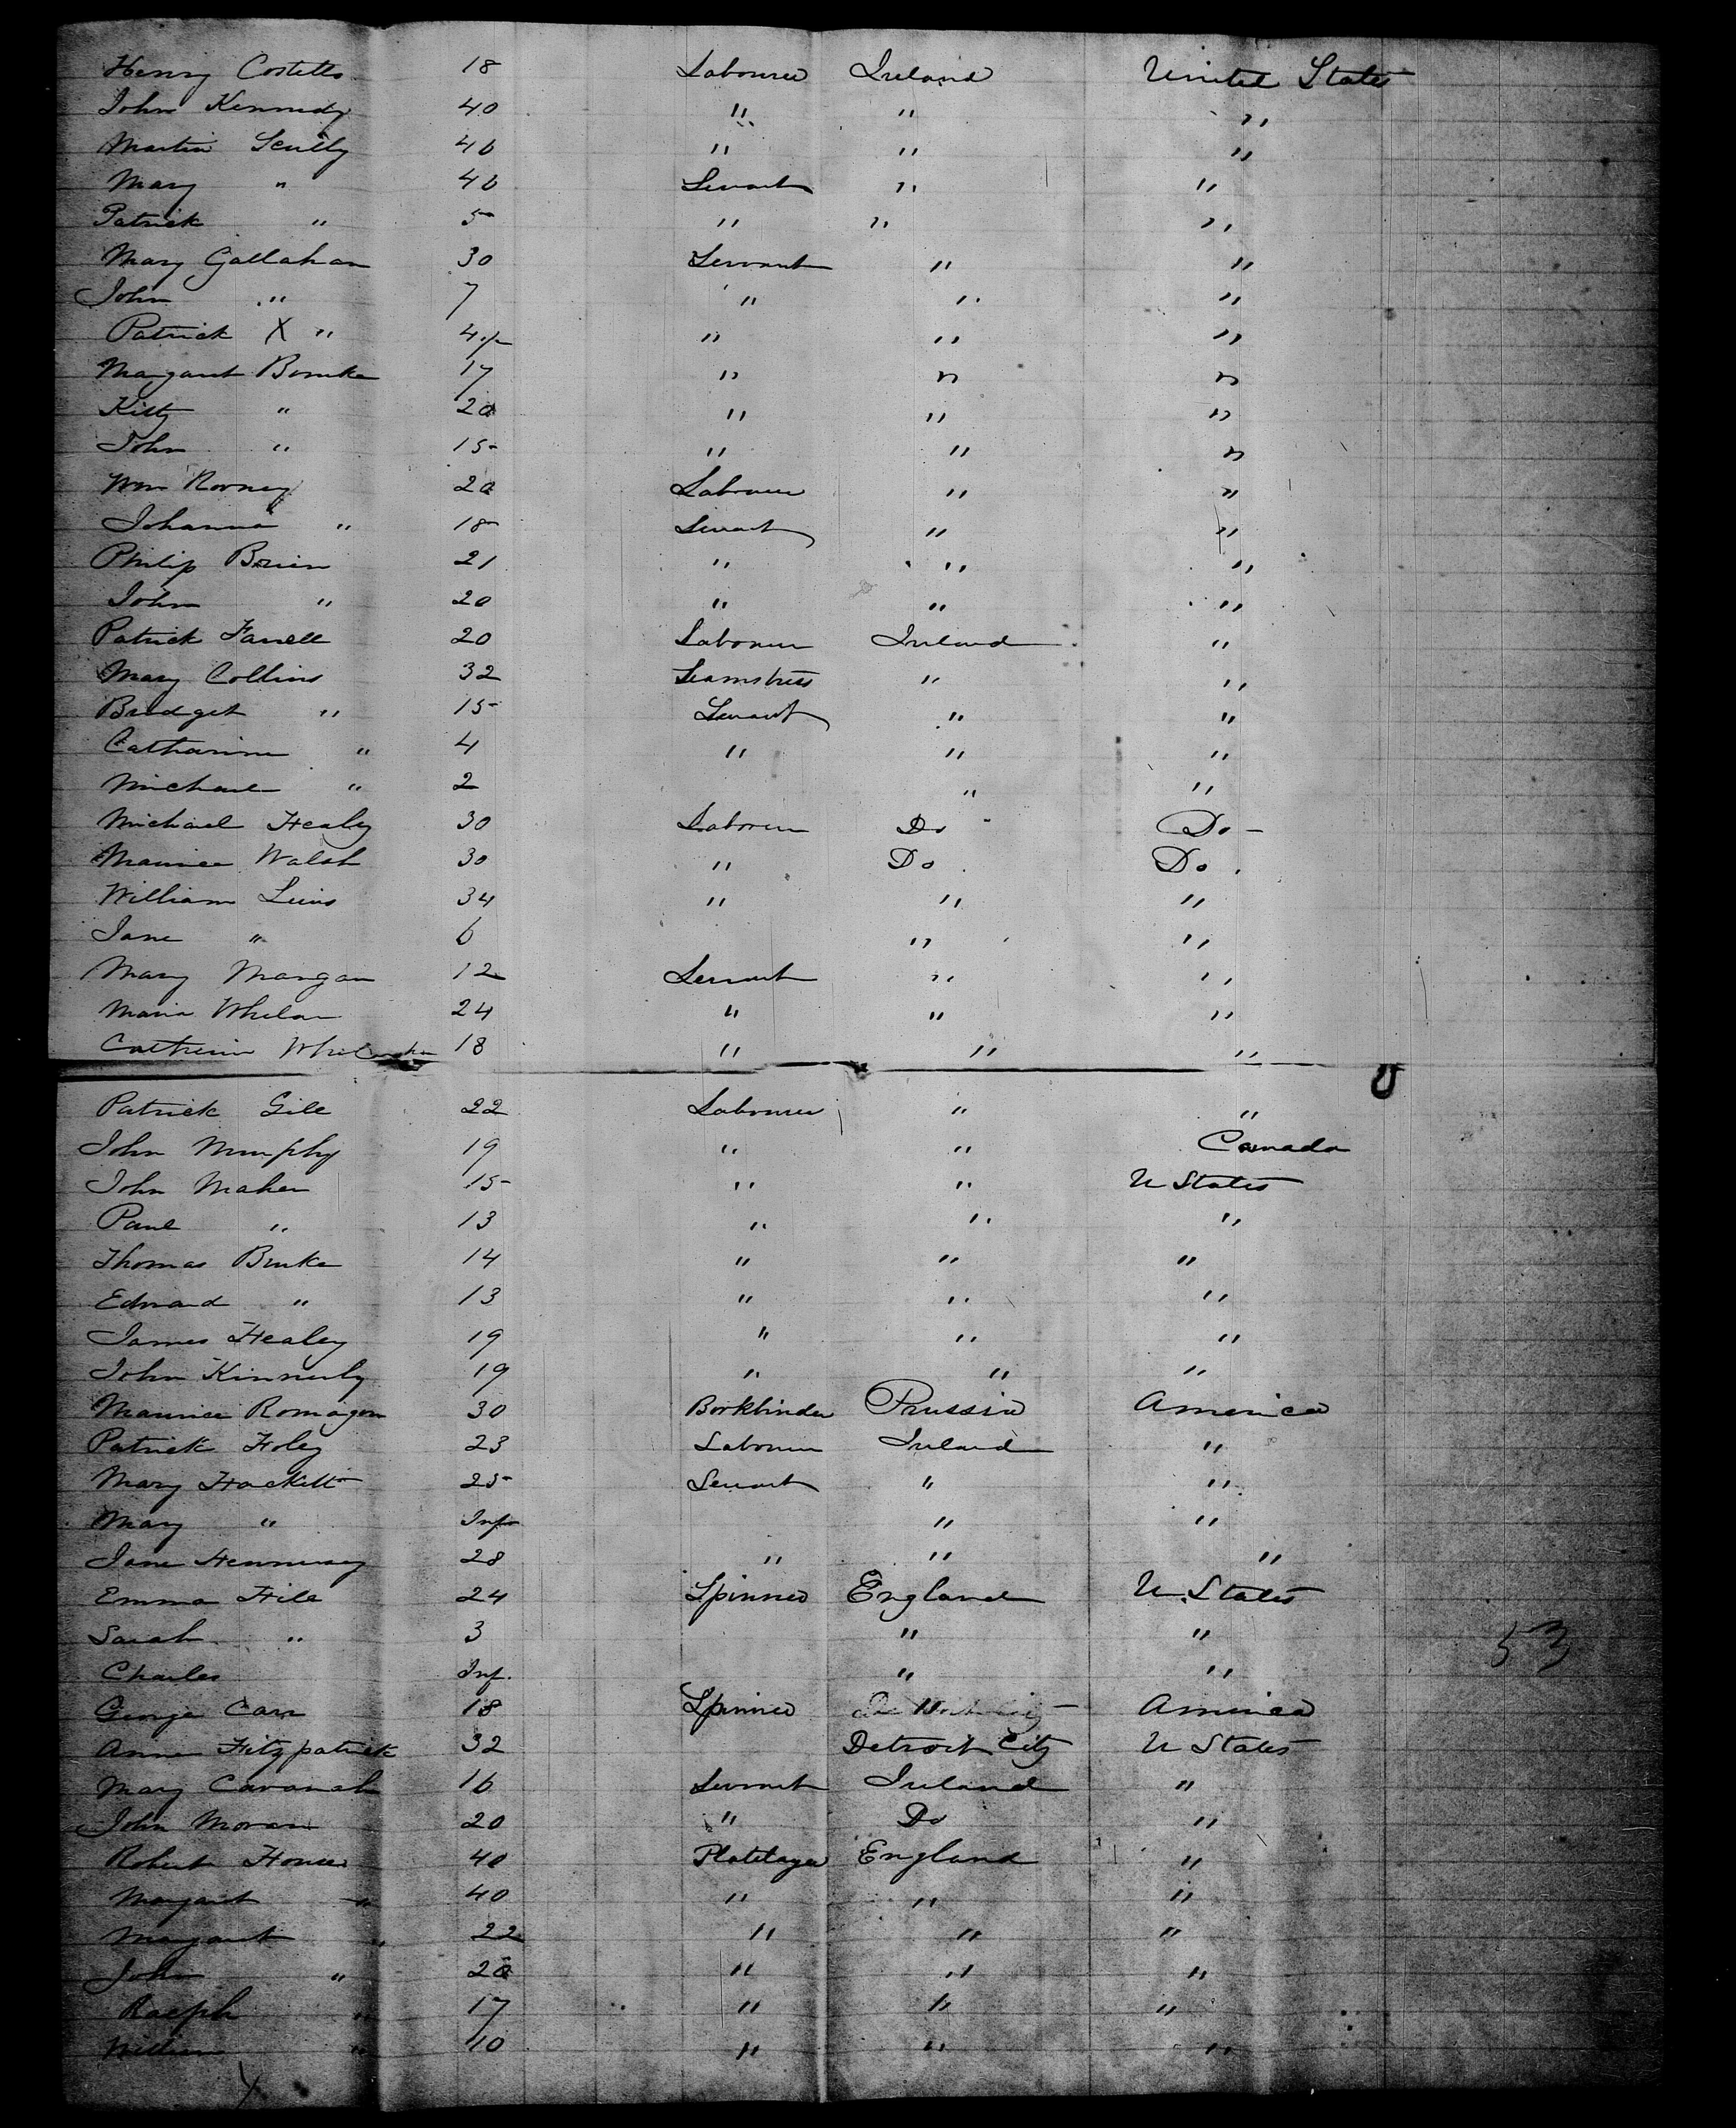 Henry Costello 18 Labourer Ireland United States
John Kennedy 40 " " "
Martin Scully 46 " " "
Mary " 46 Servant " "
Patrick " 5 " " "
Mary Gallahan 30 Servant " "
John " 7 " " "
Patrick X " 4 " " "
Margaret Bourke 17 " " "
Kitty " 20 " " "
John " 15 " " "
Wm Rooney 20 Labourer " "
Johanna " 18 Servant " "
Philip Brien 21 " " "
John " 20 " " "
Patrick Farrell 20 Labourer Ireland "
Mary Collins 32 Seamstress " "
Bridget " 15 Servant " "
Catharine " 4 " " "
Michael " 2 " "
Michael Healey 30 Labourer Do Do
Maurice Walsh 30 " Do Do
William Lewis 34 " " "
Jane " 6 " "
Mary Mangan 12 Servant " "
Maria Whelan 24 " " "
Catherine 18 " " "
Patrick Gill 22 Labourer " "
John Murphy 19 " " Canada
John Maher 15 " " U States
Paul " 13 " " "
Thomas Burke 14 " " "
Edward " 13 " " "
James Healey 19 " " "
John Kinnerly 19 " " "
Maurice Romagon 30 Bookbinder Prussia America
Patrick Foley 23 Labourer Ireland "
Mary Hackett 25 Servant " "
Mary " Inf " "
Jane Hennessy 28 " " "
Emma Hill 24 Spinner England U. States
Sarah " 3 " "
Charles Inf. " "
George Carr 18 Spinner " America
Anne Fitzpatrick 32 Detroit City U States
Mary Cavanah 16 Servant Ireland "
John Moran 20 " Do "
Robert 40 Platelayer England "
Margaret " 40 " " "
Margaret " 22 " " "
John " 20 " " "
Ralph " 17 " " "
William " 10 " " "
53